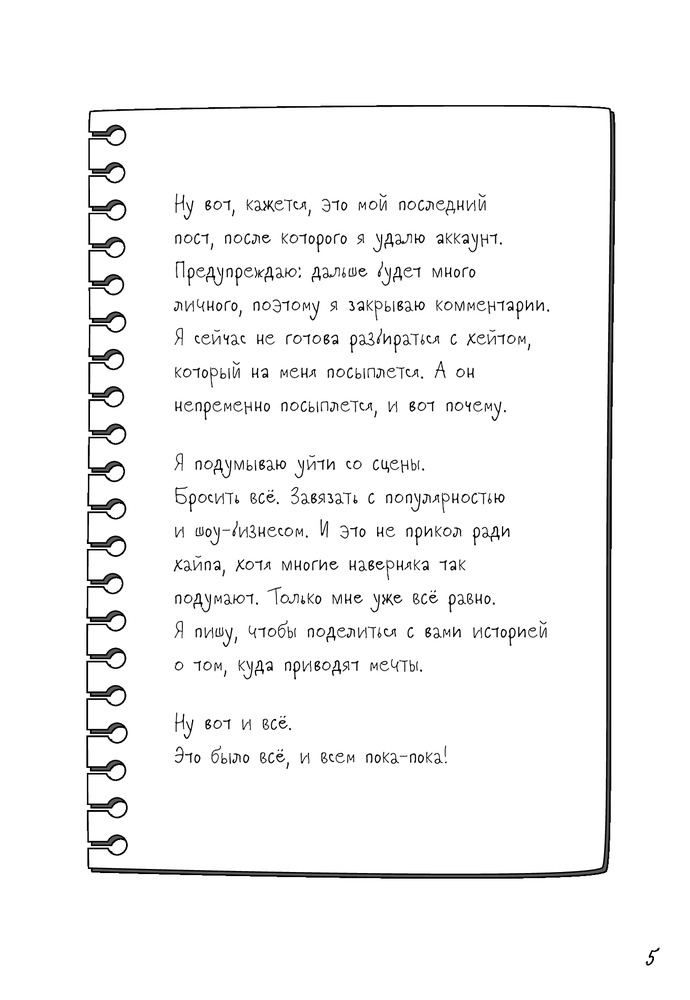 Ну вот, кажется, это мой последний
пост, после которого я удалю аккаунт.
Предупреждаю: дальше будет много
личного, поэтому я закрываю комментарии.
Я сейчас не готова разбираться с хейтом,
который на меня посыплется. А он
непременно посыплется, и вот почему.
Я подумываю уйти со сцены.
Бросить всё. Завязать с популярностью
и шоу-бизнесом. И это не прикол ради
хайпа, хотя многие наверняка так
подумают. Только мне уже всё равно.
Я пишу, чтобы поделиться с вами историей
о том, куда приводят мечты.
Ну вот и всё.
Это было всё, и всем пока-пока!
5